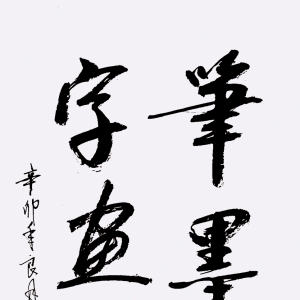 筆墨
字画
辛卯年良